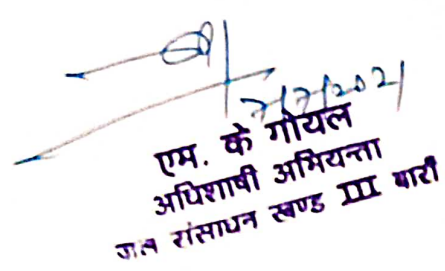 7/7/2021
एम. के गोयल
अधिशाषी अभियन्ता
जल संसाधन खण्ड III बारी